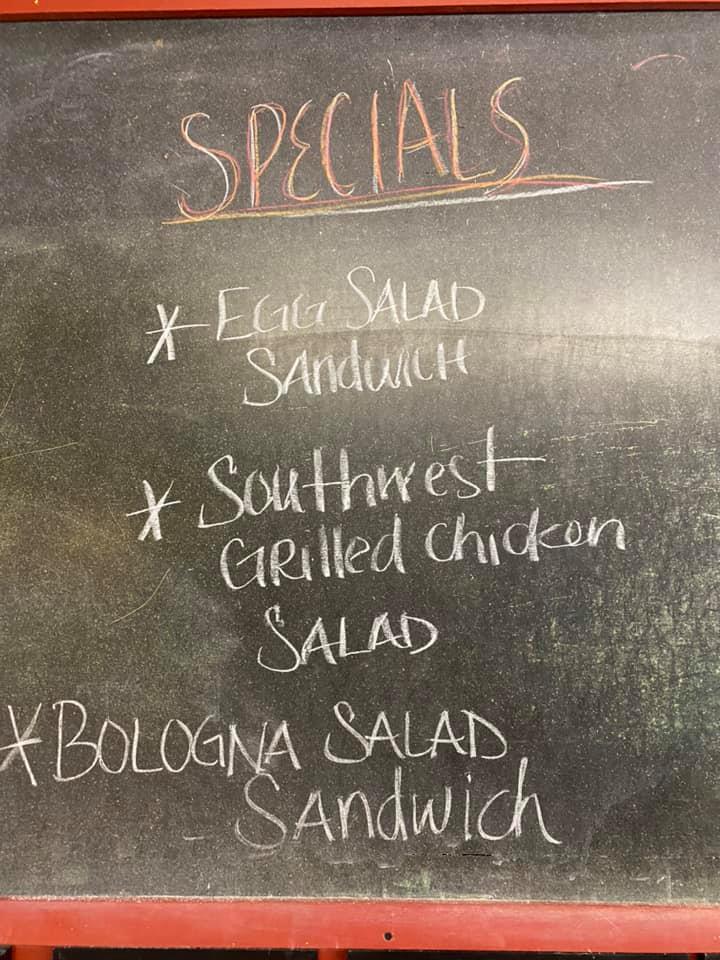 SPECIALS
* EGG SALAD
SANdWICH
* Southwest
GRilled chicken
SALAD
* BOLOGNA SALAD
SANdwich